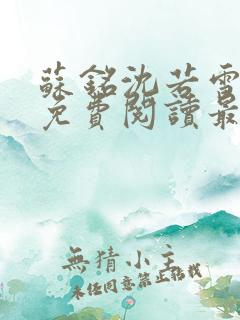 蘇銘沈若雪
免費閱讀最
無猜小主
未經同意禁止搭載